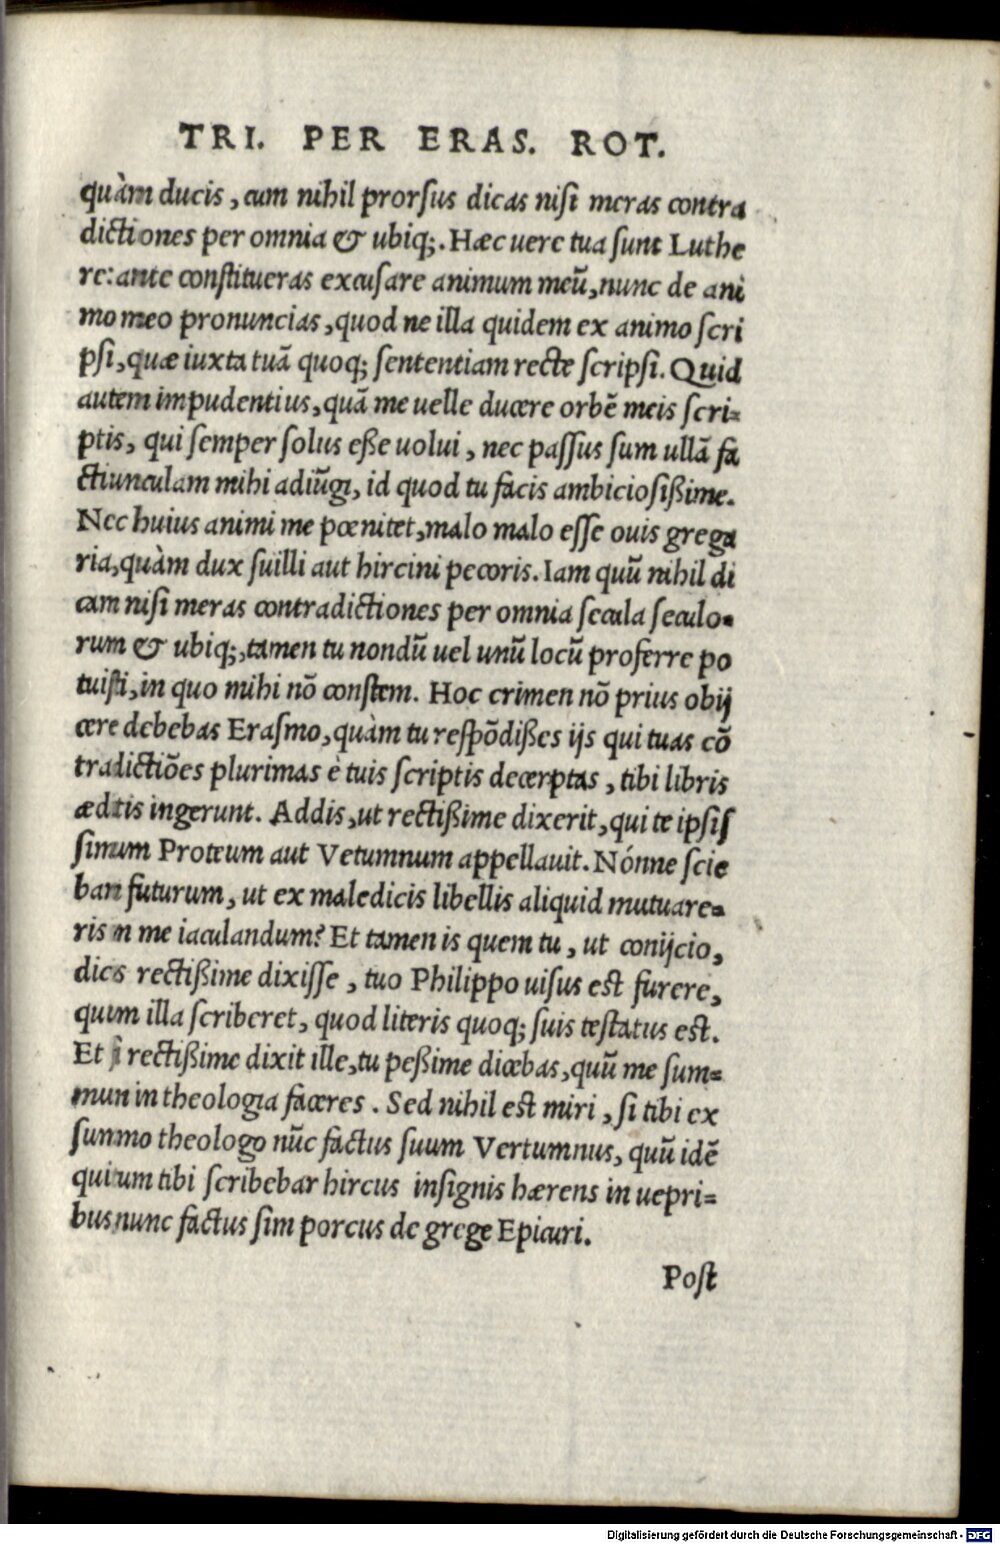 TRI. PER ERAS. ROT.
quàm ducis, cum nihil prorſus dicas niſi meras contra
dictiones per omnia & ubiq;. Hæc uere tua ſunt Luthe
re: ante conſtitueras excuſare animum meũ, nunc de ani
mo meo pronuncias, quod ne illa quidem ex animo ſcri
pſi, quæ iuxta tuã quoq; ſententiam recte ſcripſi. Quid
autem impudentius, quã me uelle ducere orbẽ meis ſcri-
ptis, qui ſemper ſolus eße uolui, nec paſſus ſum ullã fa
ctiunculam mihi adiũgi, id quod tu facis ambicioſißime.
Nec huius animi me pœnitet, malo malo eſſe ouis grega
ria, quàm dux ſuilli aut hircini pecoris. Iam quũ nihil di
cam niſi meras contradictiones per omnia ſecula ſeculo-
rum & ubiq;, tamen tu nondũ uel unũ locũ proferre po
tuiſti, in quo mihi nõ conſtem. Hoc crimen nõ prius obij
cere debebas Eraſmo, quàm tu reſpõdißes ijs qui tuas cõ
tradictiões plurimas è tuis ſcriptis decerptas, tibi libris
æditis ingerunt. Addis, ut rectißime dixerit, qui te ipſiſ
ſimum Proteum aut Vetumnum appellauit. Nónne ſcie
bam futurum, ut ex maledicis libellis aliquid mutuare-
ris in me iaculandum? Et tamen is quem tu, ut conijcio,
dicis rectißime dixiſſe, tuo Philippo uiſus eſt furere,
quum illa ſcriberet, quod literis quoq; ſuis teſtatus eſt.
Et ſi rectißime dixit ille, tu peßime dicebas, quũ me ſum-
mum in theologia faceres. Sed nihil eſt miri, ſi tibi ex
ſummo theologo nũc factus ſuum Vertumnus, quũ idẽ
qui tum tibi ſcribebar hircus inſignis hærens in uepri-
bus, nunc factus ſim porcus de grege Epicuri.
Poſt
Digitalisierung gefördert durch die Deutsche Forschungsgemeinschaft - DFG